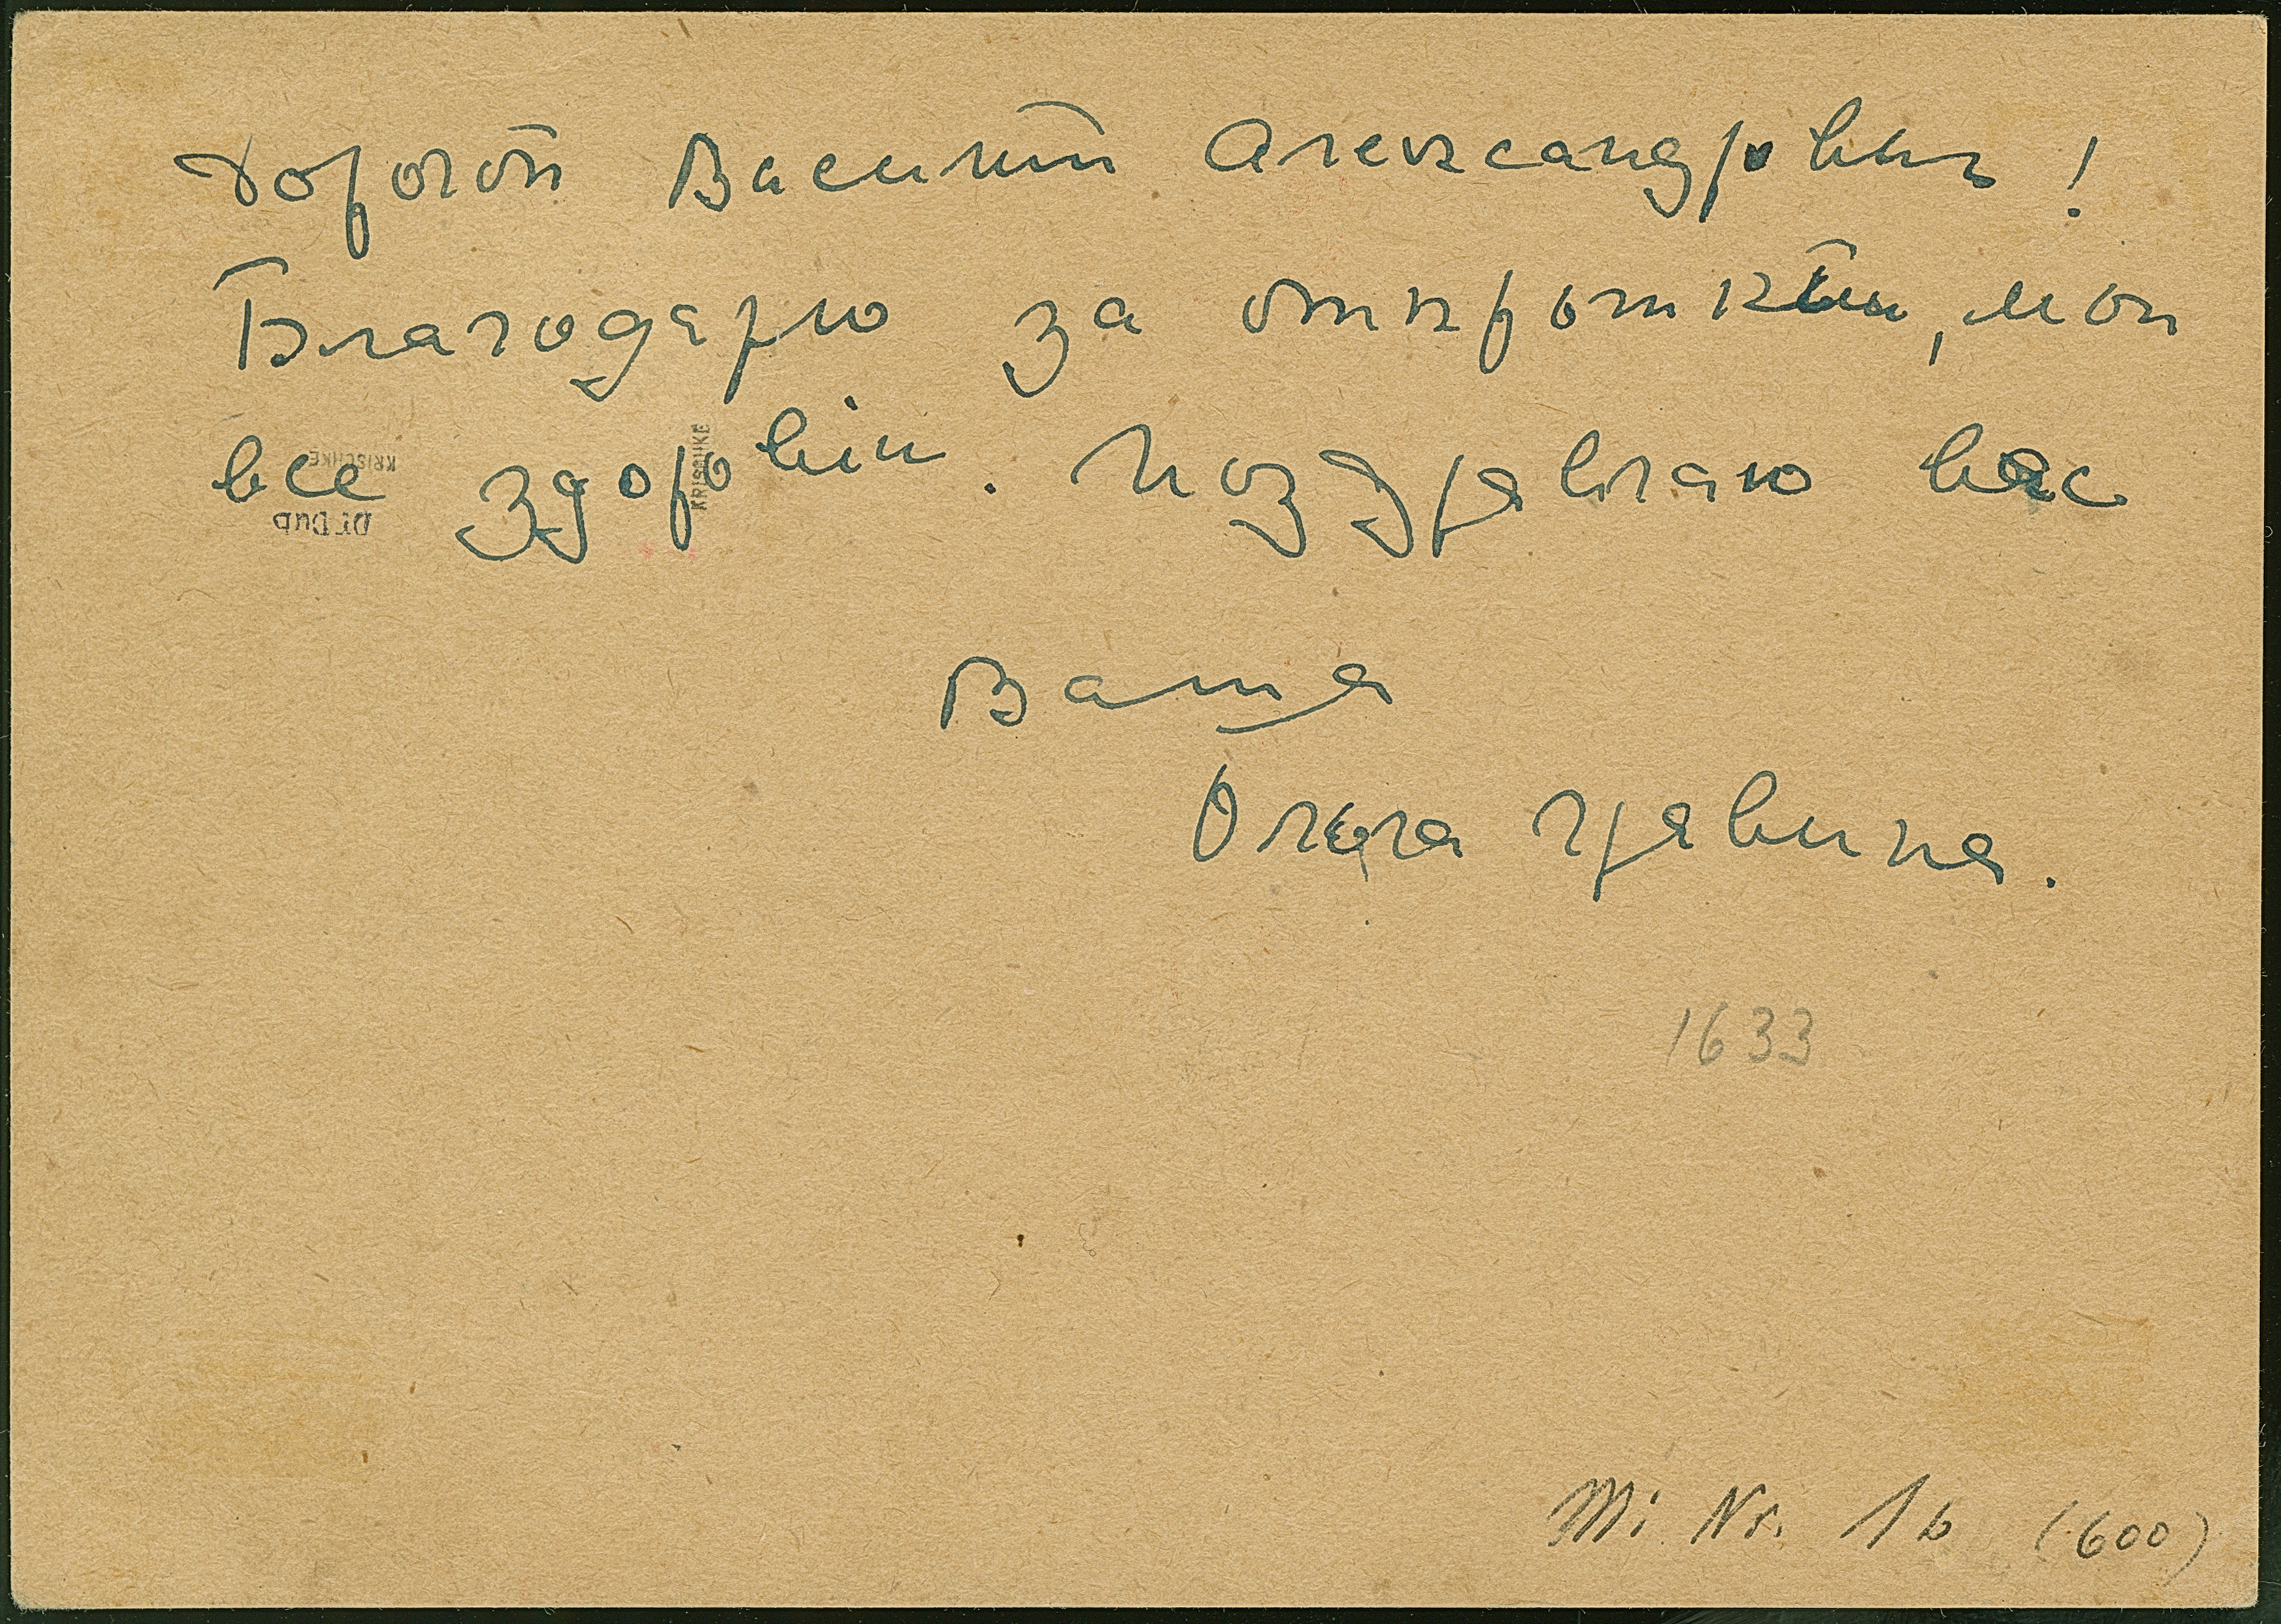 Дорогой Василий Александрович!
Благодарю за открытки, мои
все здоровы. Поздравляю вас
Ваша
Ольга
KRISCHKE
Dr Dub
KRISCHKE
1633
Mi Nr. 1b (600)